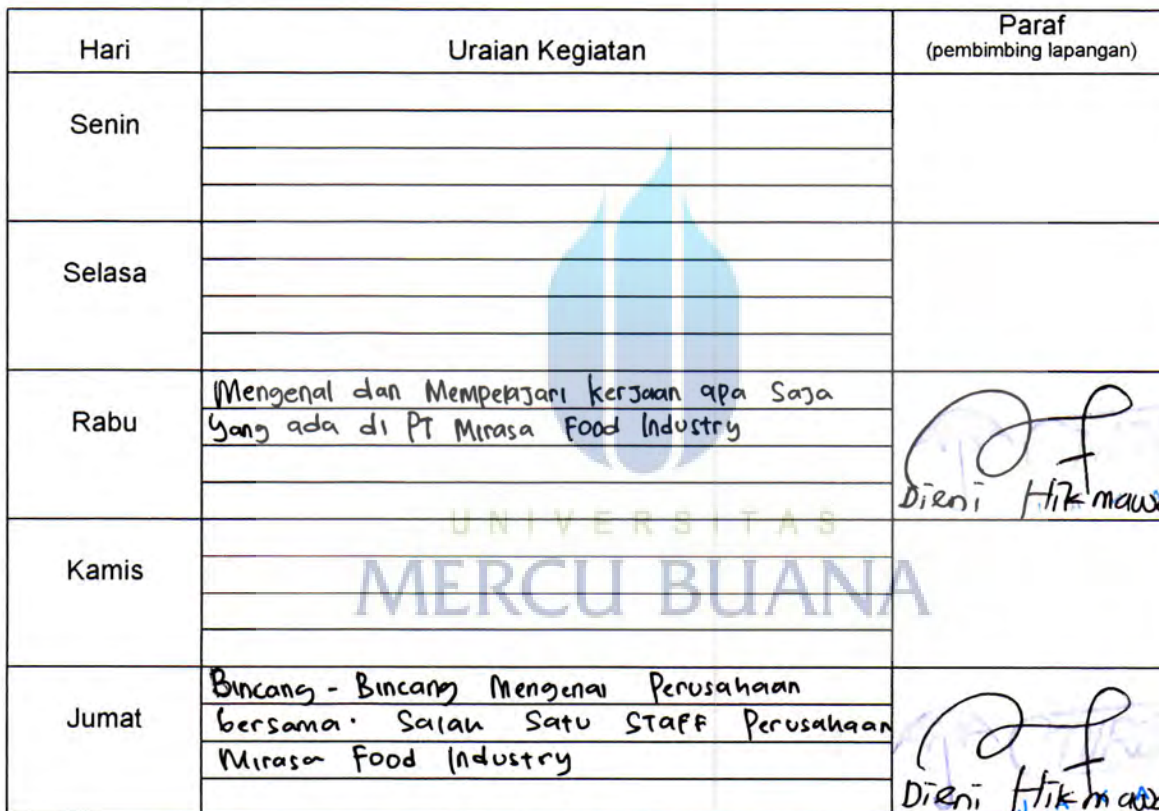 Hari Uraian Kegiatan Paraf
(pembimbing lapangan)
Senin
Selasa
Rabu
Mengenal dan Mempelajari kerjaan apa Saja
yang ada di PT Mirasa Food Industry
Dieni Hikmawa
UNIVERSITAS
Kamis
MERCU BUANA
Jumat
Bincang - Bincang Mengenai Perusahaan
bersama. Salah Satu STAFF Perusahaan
Mirasa Food Industry
Dieni Hikmawa